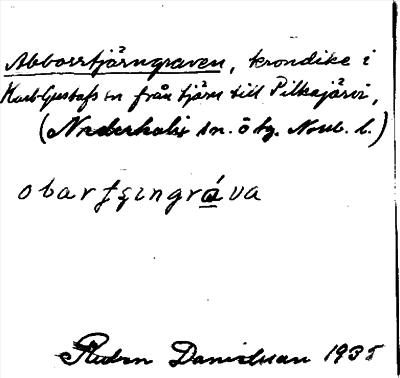 Abborrtjärngraven, krondike i
Karl Gustafs sn från tjärn till Pilkajärvi,
(Nederkalix sn. ö hg. Norrb. l.)
obarţşıngráva
Ruben Danielsson 1935